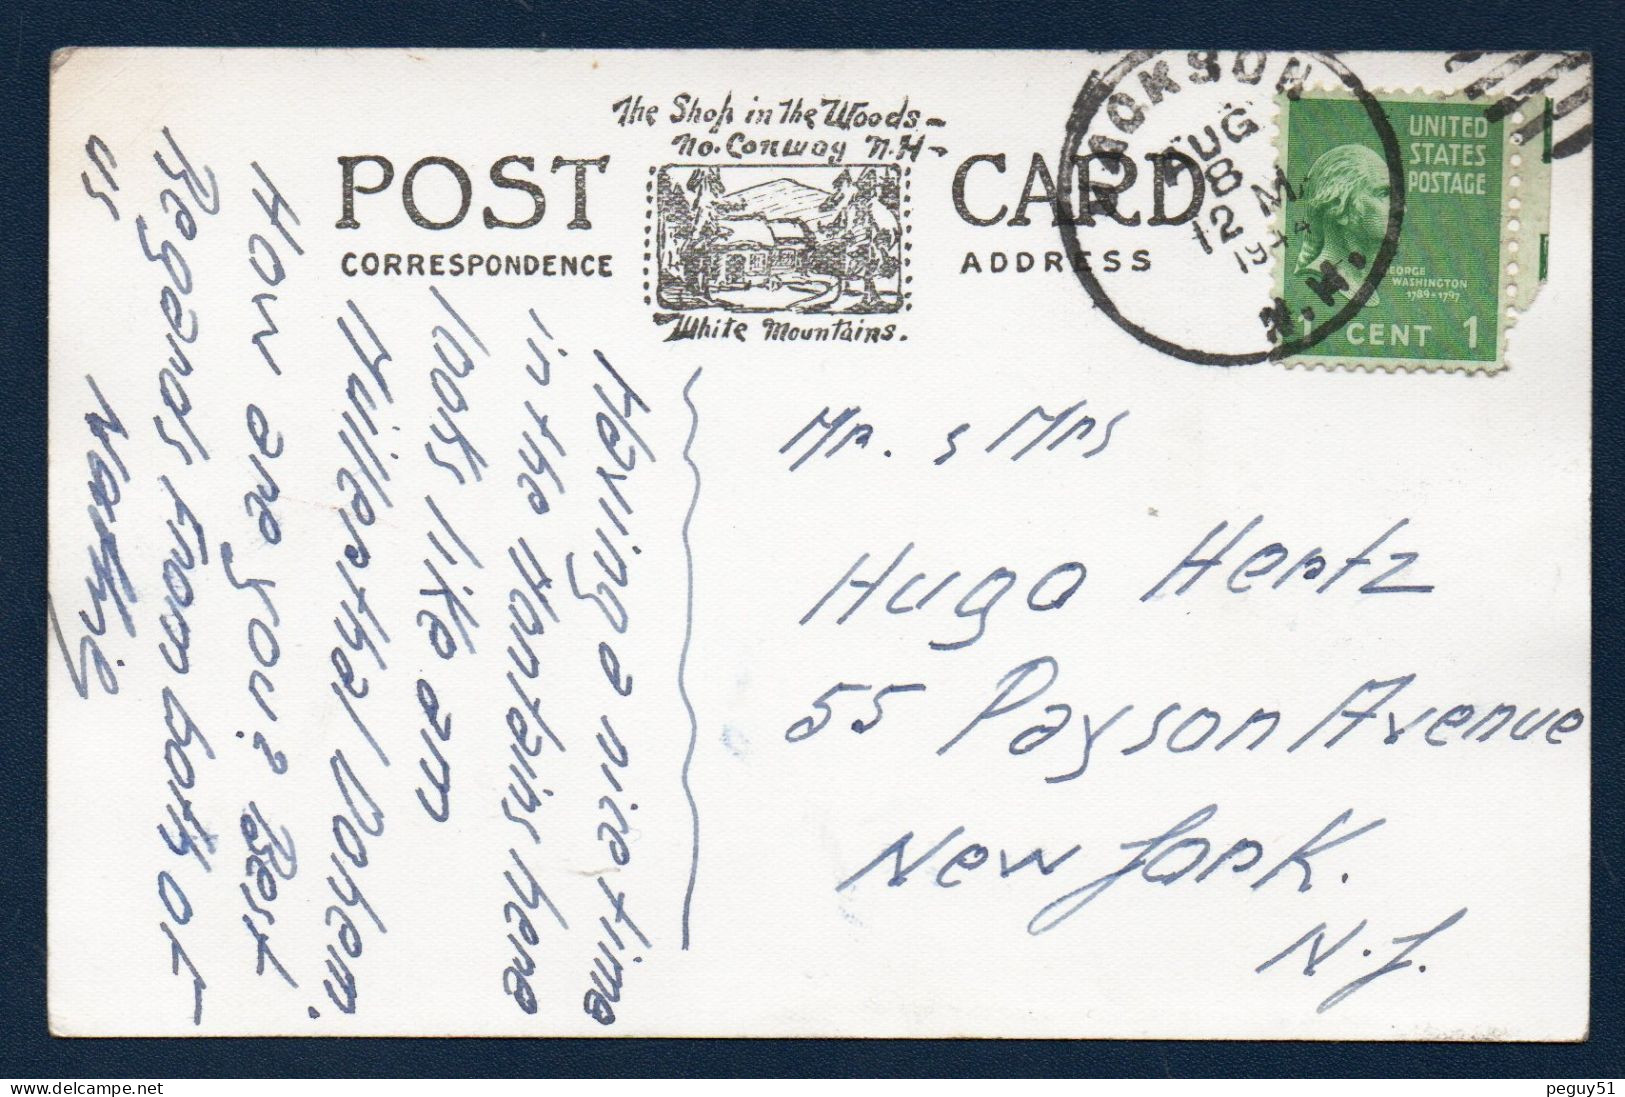 The Shop in the Woods –
No. Conway N.H –
POST CARD
CORRESPONDENCE
ADDRESS
White Mountains.
JACKSON
AUG
8
12 M.
1944
N.H.
UNITED
STATES
POSTAGE
GEORGE
WASHINGTON
1789-1797
1 CENT 1
Having a nice time
in the Montains here
looks like am
Müllerthal Dohem.
How are you? Best
Regards from both of
us
Mr. & Mrs
Hugo Hertz
55 Payson Avenue
New York.
N.Y.
peguy51